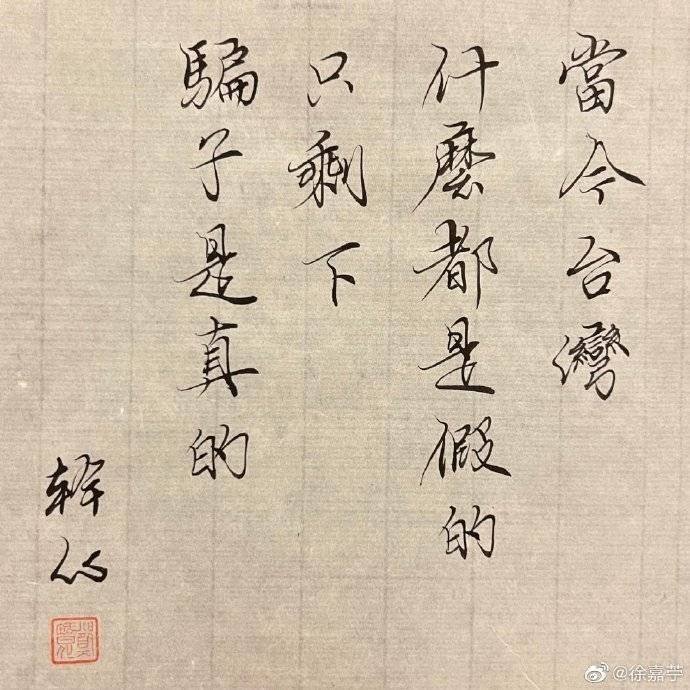 當今台灣
什麼都是假的
只剩下
騙子是真的
@徐嘉苧